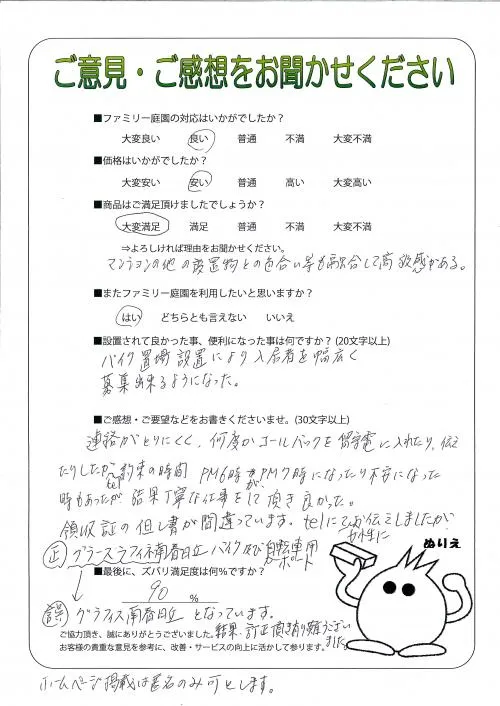 ご意見・ご感想をお聞かせください
■ファミリー庭園の対応はいかがでしたか？
大変良い 良い 普通 不満 大変不満
■価格はいかがでしたか？
大変安い 安い 普通 高い 大変高い
■商品はご満足頂けましたでしょうか？
大変満足 満足 普通 不満 大変不満
⇒よろしければ理由をお聞かせください。
マンションの他の設置物との色合い等も融合して高級感がある。
■またファミリー庭園を利用したいと思いますか？
はい どちらとも言えない いいえ
■設置されて良かった事、便利になった事は何ですか？(20文字以上)
バイク置場設置により入居者を幅広く
募集出来るようになった。
■ご感想・ご要望などをお書きくださいませ。(30文字以上)
連絡がとりにくく、何度かコールバックを留守電に入れたり、伝え
たりしたが tel約束の時間 PM6時がPM7時になったり不安になった
時もあったが 結果丁寧な仕事をして頂き良かった。
領収証の但し書が間違っています。telにてお伝えしましたが
女性に
正 グラースラフィネ南春日丘 バイク及び自転車用
カーポート
ぬりえ
■最後に、ズバリ満足度は何％ですか？
90 %
誤 グラフィス南春日丘 となっています。
ご協力頂き、誠にありがとうございました。結果、訂正頂き有り難うござい
ました。
お客様の貴重な意見を参考に、改善・サービスの向上に活かして参ります。
ホームページ掲載は匿名のみ可とします。